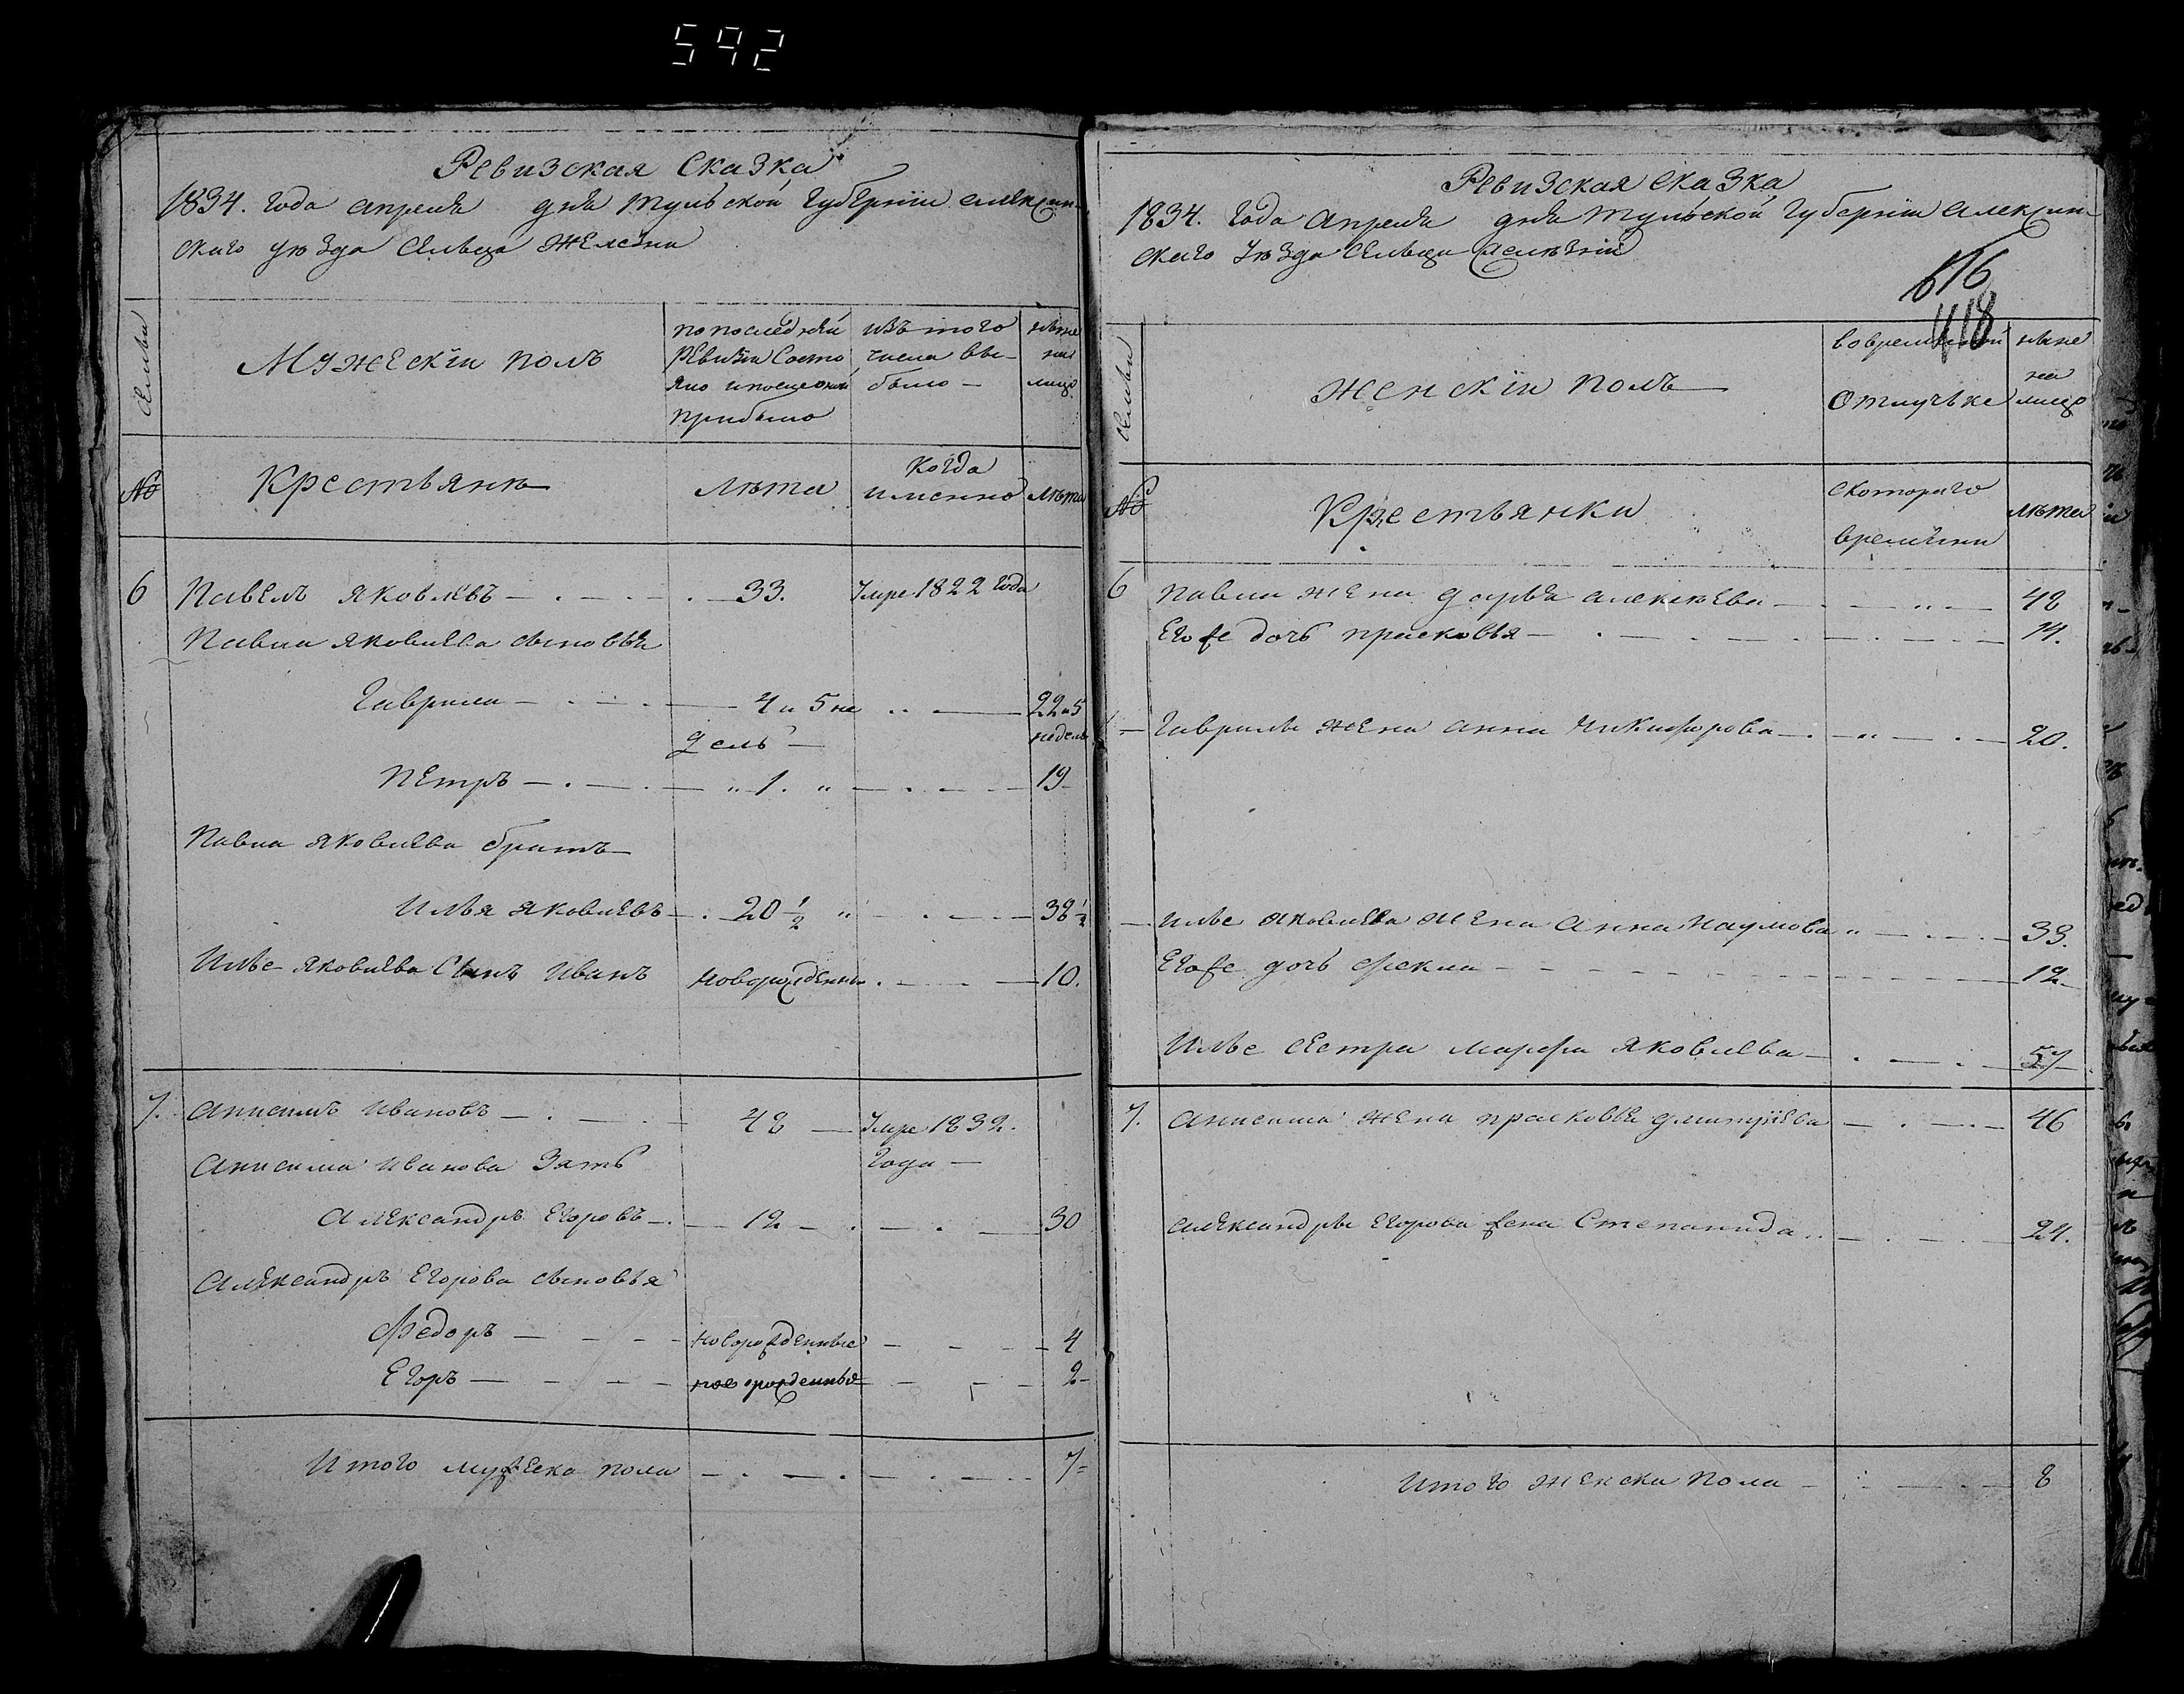 592
Ревизская Сказка
1834. года апреля дня Тульской губернии алексин-
скаго уезда Сельца Железна
Семьи
Мужескiи полъ
по последней
Ревизiи Состо
яло и после оной
прибыло
изъ того
числа вы-
было —
ныне
на
лицо
№
Крестьяне
Лета
Когда
именно
Лета
6 Павелъ яковлевъ — 33. Умре 1822 года
Павла яковлева сыновья
Гаврила — 4 и 5 не 22 и 5
дель — недель
Петръ — " 1. " — 19
Павла яковлева братъ
Илья яковлевъ — 20 1/2 " — 38 1/2
Илье яковлева Сынъ Иванъ новорожденны — 10.
7. анисимъ ивановъ — 48 — Умре 1832.
анисима иванова Зять года —
александръ Егоровъ — 12 — 30
александръ Егорова сыновья
Федоръ — новорожденные — 4
Егоръ — новорожденныя — 2
Итого мужеска пола — 7
Ревизская Сказка
1834. года апреля дня Тульской губернии алексин-
скаго уезда Сельца железнiи
416
418
Семьи
женскiи полъ
во временной
Отлучке
ныне
на
лицо
№
Крестьянки
скотораго
времини
лета
6 Павла жена дарья алексеева — 42
Его же дочь прасковья — 14.
Гаврилы жена анна Никифорова — 20.
Илье яковлева жена анна Наумова — 33.
Его же дочь фекла — 12
Илье сестра марфа яковлева — 57
7. анисима жена прасковья дмитрiева — 46
александры Егорова жена Степанида — 24.
Итого женска пола — 8